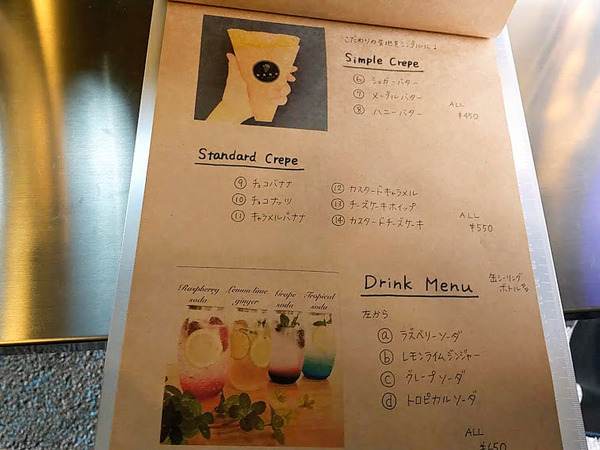 こだわりの生地をシンプルに♪
Simple Crepe
⑥ シュガーバター
⑦ メープルバター
⑧ ハニーバター
ALL
¥450
Standard Crepe
⑨ チョコバナナ
⑩ チョコナッツ
⑪ キャラメルバナナ
⑫ カスタードキャラメル
⑬ チーズケーキホイップ
⑭ カスタードチーズケーキ
ALL
¥550
Raspberry soda
Lemon lime ginger
Grape soda
Tropical soda
Drink Menu
缶シーリング
ボトル
左から
ⓐ ラズベリーソーダ
ⓑ レモンライムジンジャー
ⓒ グレープソーダ
ⓓ トロピカルソーダ
ALL
¥650